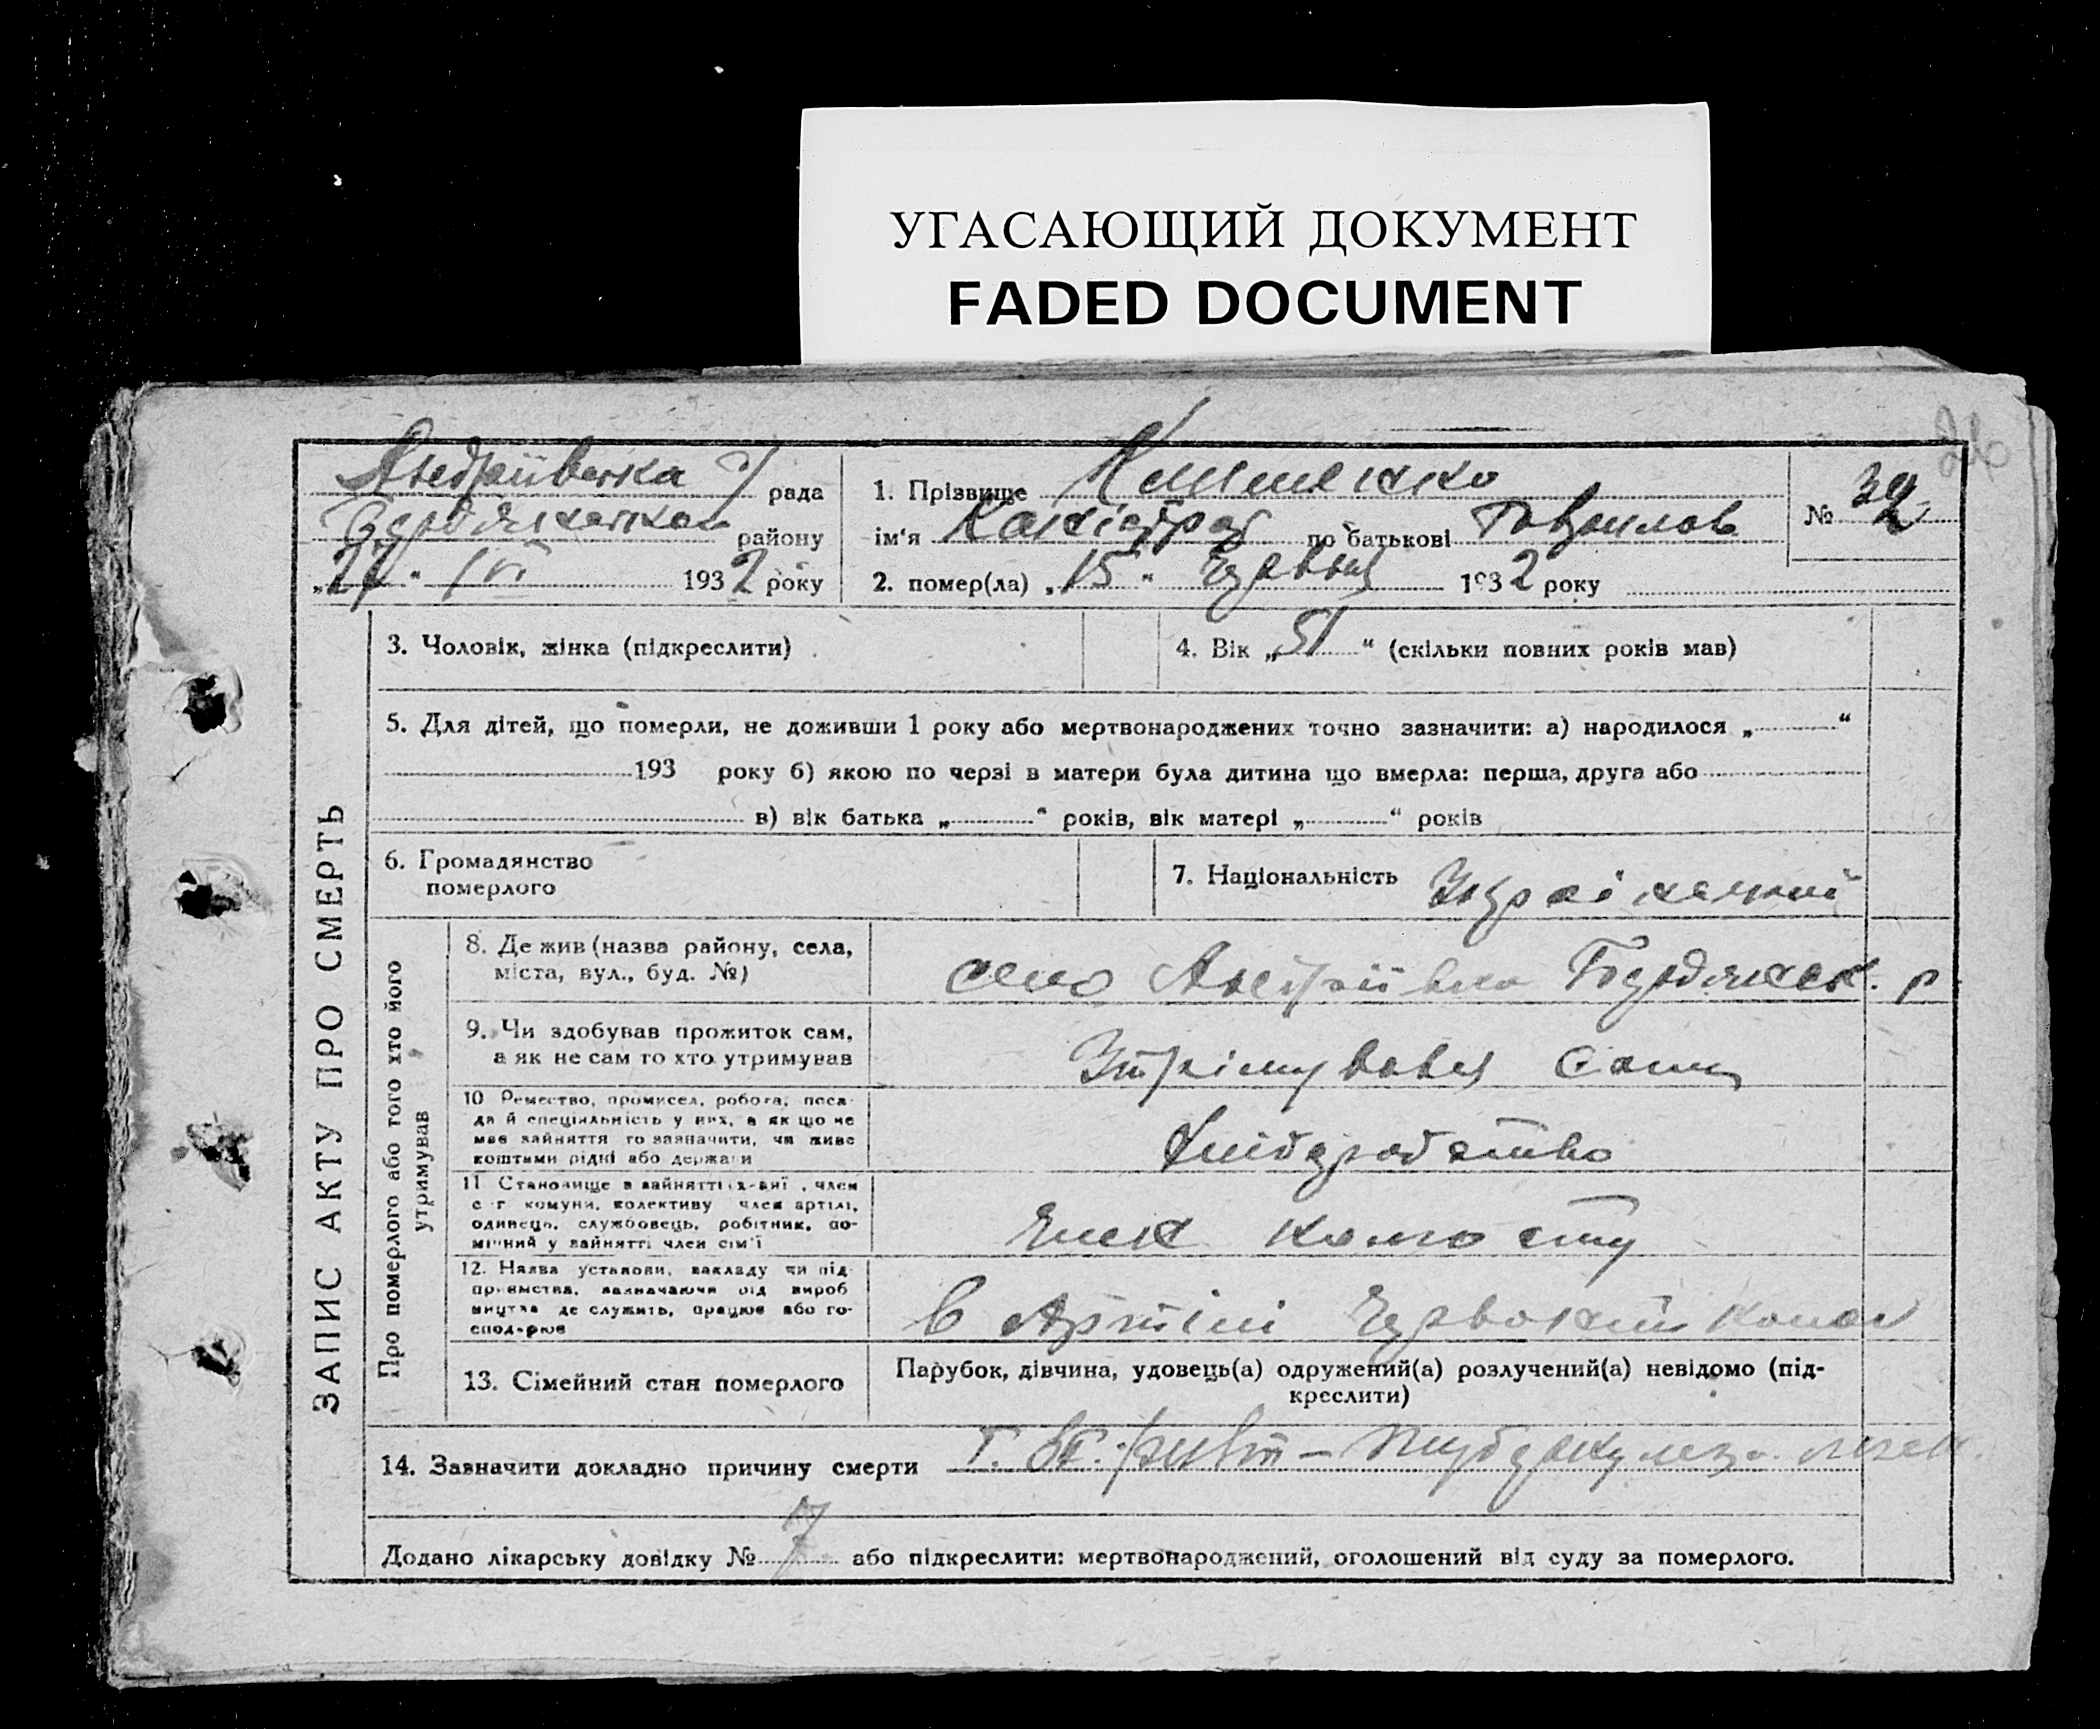 УГАСАЮЩИЙ ДОКУМЕНТ
FADED DOCUMENT
26
Андріївська с/ рада
Бородянського району
„27“ VI 1932 року
1. Прізвище
ім'я Кондрат по батькові Гаврилов
2. помер(ла) „15“ Червня 1932 року
№ 32
ЗАПИС АКТУ ПРО СМЕРТЬ
3. Чоловік, жінка (підкреслити)
4. Вік „51“ (скільки повних років мав)
5. Для дітей, що померли, не доживши 1 року або мертвонароджених точно зазначити: а) народилося „ “
193 року б) якою по черзі в матери була дитина що вмерла: перша, друга або
в) вік батька „ “ років, вік матері „ “ років
6. Громадянство
померлого
7. Національність Український
Про померлого або того хто його
утримував
8. Де жив (назва району, села,
міста, вул., буд. №)
село Андріївка Бородянськ. р
9. Чи здобував прожиток сам,
а як не сам то хто утримував
Утрімувався Сам
10 Ремество, промисел, робота, поса-
да й спеціяльність у них, а як що не
мав зайняття то зазначити, чи живе
коштами рідні або держави
Хліборобство
11 Становище в зайнятті х-анї, член
с-г комуни, колективу член артілі,
одинець, службовець, робітник, по-
мічний у зайнятті член сім'ї
Член
12. Назва установи, закладу чи під-
приємства, зазначаючи рід вироб-
ництва де служить, працює або го-
сподарює
В Артілі Червоний
13. Сімейний стан померлого
Парубок, дівчина, удовець(а) одружений(а) розлучений(а) невідомо (під-
креслити)
14. Зазначити докладно причину смерти Туберкульоз леген.
Додано лікарську довідку № 7 або підкреслити: мертвонароджений, оголошений від суду за померлого.